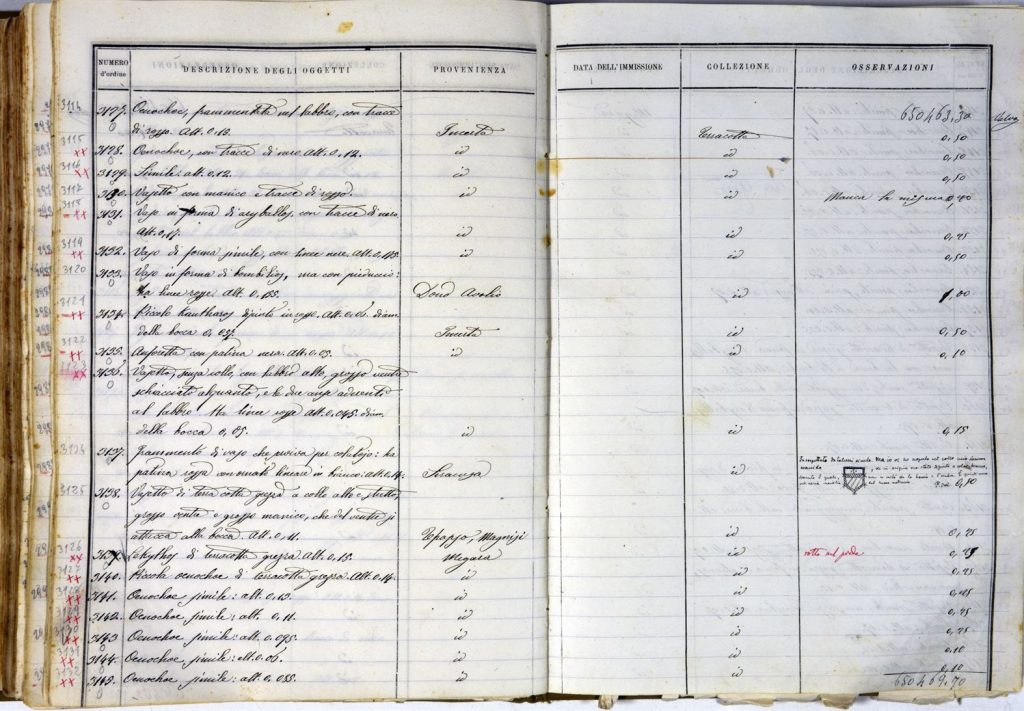 NUMERO d'ordine DESCRIZIONE DEGLI OGGETTI PROVENIENZA DATA DELL'IMMISSIONE COLLEZIONE OSSERVAZIONI
650463,30
3114 3127. Oenochoe, frammentata nel labbro, con tracce
di rosso. Alt. 0,13. Incerta Terracotta 0,50
3115 3128. Oenochoe, con tracce di nero. Alt. 0,12. id id 0,50
3116 3129. Simile: alt. 0,12 id id 0,50
3117 3130. Vasetto con manico e tracce di rosso. id id Manca la misura
3118 3131. Vaso in forma di aryballos, con tracce di nero.
Alt. 0,17. id id 0,75
3119 3132. Vaso di forma simile, con linee nere. Alt. 0,195. id id 0,50
3120 3133. Vaso in forma di bombilios, ma con pieduccio:
Ha linee rosse. Alt. 0,155. Dono Avolio id 1,00
3121 3134. Piccolo Kantharos dipinto in rosso. Alt. 0,06. diam.
della bocca Incerta id 0,50
3122 3135. Anforetta con patina nera. Alt. 0,09. id id 0,10
3123 3136. Vasetto, senza collo, con labbro alto, grosso ventre
schiacciato alquanto, e le due anse aderenti
al labbro. Ha linee rosse. Alt. 0,045. diam.
della bocca 0,05. id id 0,15
3124 3137. Frammento di vaso che serviva per colatojo: ha
patina rossa con ornati lineari in bianco. Alt. 0,14. Siracusa id
3125 3138. Vasetto di terra cotta grezza a collo alto e stretto,
grosso ventre e grosso manico, che dal ventre si
attacca alla bocca. Alt. 0,11. Tapso, Magnisi id 0,75
3126 3139. Lekythos di terracotta grezza. Alt. 0,15. Megara id rotta nel piede 0,75
3127 3140. Piccola oenochoe di terracotta grezza. Alt. 0,14. id id 0,75
3128 3141. Oenochoe simile: alt. 0,13. id id
3129 3142. Oenochoe simile: alt. 0,11. id id 0,75
3130 3143. Oenochoe simile: alt. 0,095. id id 0,75
3131 3144. Oenochoe simile: alt. 0,06. id id 0,10
3132 3145. Oenochoe simile: alt. 0,055. id id 0,10
650469,70